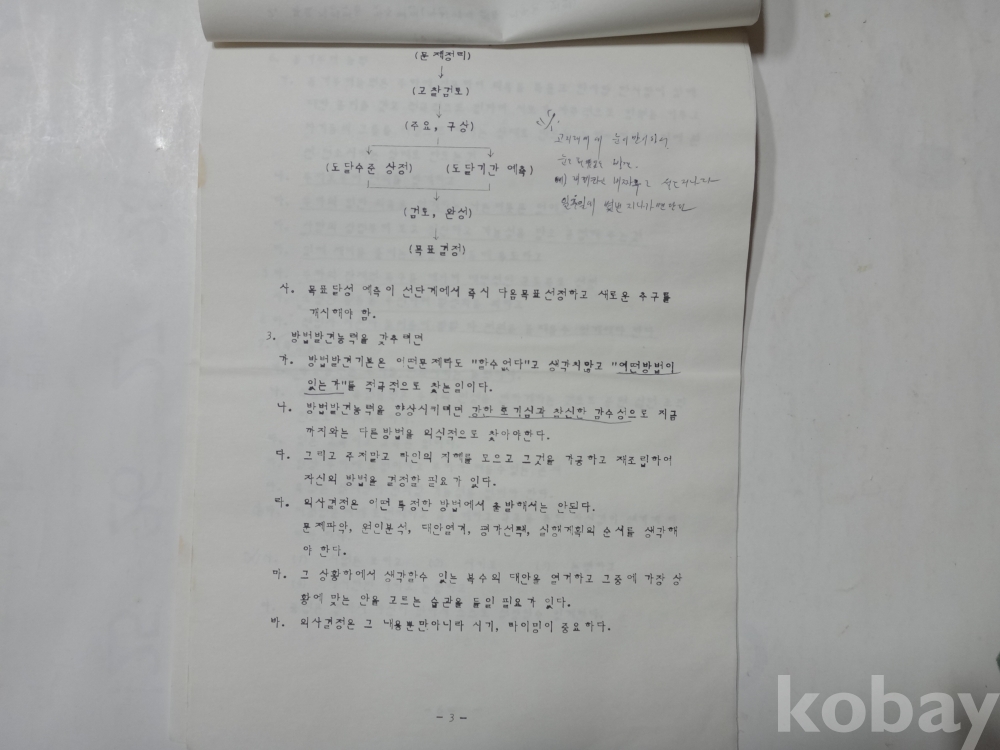 (문제정리)
↓
(고찰검토)
↓
(주요, 구상)
(도달수준 상정) (도달기간 예측)
(검토, 완성)
↓
(목표결정)
사. 목표달성 예측이 선단계에서 즉시 다음목표선정하고 새로운 추구를
개시해야 함.
3. 방법발견능력을 갖추려면
가. 방법발견기본은 어떤문제라도 "할수없다"고 생각지말고 "어떤방법이
있는가"를 적극적으로 찾는일이다.
나. 방법발견능력을 향상시키려면 강한 호기심과 참신한 감수성으로 지금
까지와는 다른방법을 의식적으로 찾아야한다.
다. 그리고 주저말고 타인의 지혜를 모으고 그것을 가공하고 재조립하여
자신의 방법을 결정할 필요가 있다.
라. 의사결정은 어떤 특정한 방법에서 출발해서는 안된다.
문제파악, 원인분석, 대안열거, 평가선택, 실행계획의 순서를 생각해
야 한다.
마. 그 상황하에서 생각할수 있는 복수의 대안을 열거하고 그중에 가장 상
황에 맞는 안을 고르는 습관을 들일 필요가 있다.
바. 의사결정은 그 내용뿐만아니라 시기, 타이밍이 중요하다.
- 3 -
kobay